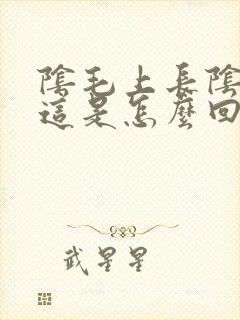 陰毛上長陰
這是怎麼回
武星星